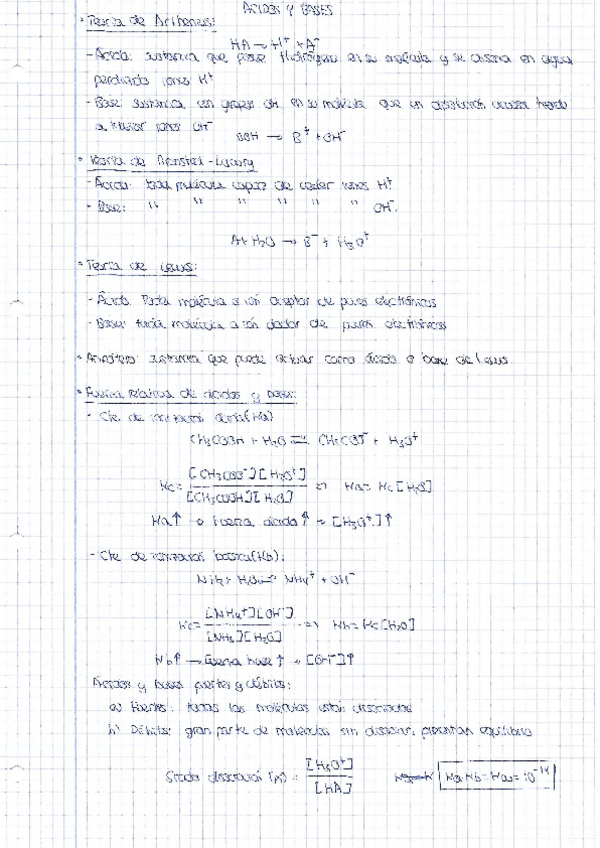 ÁCIDOS Y BASES
• Teoría de Arrhenius:
HA → H⁺ + A⁻
- Ácido: sustancia que posee Hidrógeno en su molécula y se disocia en agua
perdiendo iones H⁺
- Base: sustancia con grupos OH en su molécula que en disolución acuosa
a iones OH⁻
BOH → B⁺ + OH⁻
• Teoría de Bronsted-Lowry
- Ácido: toda molécula capaz de ceder iones H⁺
- Base: " " " " " " OH⁻.
A + H₂O → B⁻ + H₃O⁺
• Teoría de Lewis:
- Ácido: Toda molécula o ión aceptor de pares electrónicos
- Base: toda molécula o ión dador de pares electrónicos
• Anfótero: sustancia que puede actuar como ácido o base de Lewis
• Fuerza relativa de ácidos y bases:
- Cte de ionización ácida (Ka)
CH₃COOH + H₂O ⇌ CH₃COO⁻ + H₃O⁺
Kc = [CH₃COO⁻][H₃O⁺] / [CH₃COOH][H₂O] ⇒ Ka = Kc[H₂O]
Ka↑ → Fuerza ácida↑ → [H₃O⁺]↑
- Cte de ionización básica (Kb):
NH₃ + H₂O ⇌ NH₄⁺ + OH⁻
Kc = [NH₄⁺][OH⁻] / [NH₃][H₂O] ⇒ Kb = Kc[H₂O]
Kb↑ → Fuerza base↑ → [OH⁻]↑
Ácidos y bases fuertes y débiles:
a) Fuertes: todas las moléculas están disociadas
b) Débiles: gran parte de moléculas sin disociar, presentan equilibrio
Grado disociación = [H₃O⁺] / [HA] Ka·Kb = Kw = 10⁻¹⁴